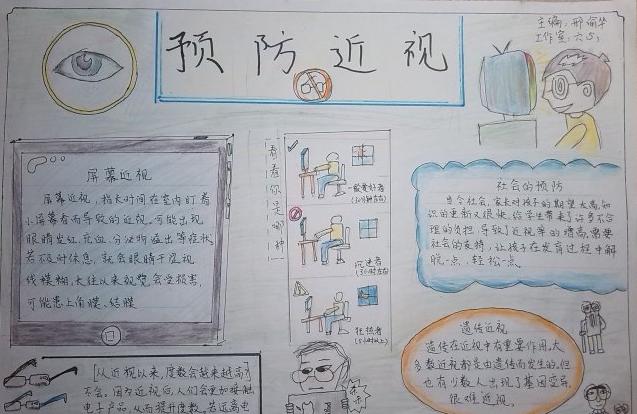 预防近视
主编：邢俞华
工作室：六(5)
屏幕近视
屏幕近视，指长时间在室内盯着
小屏幕看而导致的近视。可能出现
眼睛发红、充血、分泌物溢出等症状
若不及时休息，就会眼睛干涩视
线模糊，久往以来视觉会受损害，
可能患上角膜、结膜
看看你是哪种
一般爱好者
沉迷者
狂热者
社会的预防
当今社会，家长对孩子的期望太高，知
识的更新又很快，给学生带来了许多不合
理的负担，导致了近视率的增高，需要
社会的支持，让孩子在发育过程中解
脱一点，轻松一点。
遗传近视
遗传在近视中有重要作用。大
多数近视都是由遗传而发生的。但
也有少数人出现了基因变异，
很难近视。
从近视以来，度数会越来越高？
不会。因为近视后，人们会更加接触
电子产品，从而提升度数。若远离电